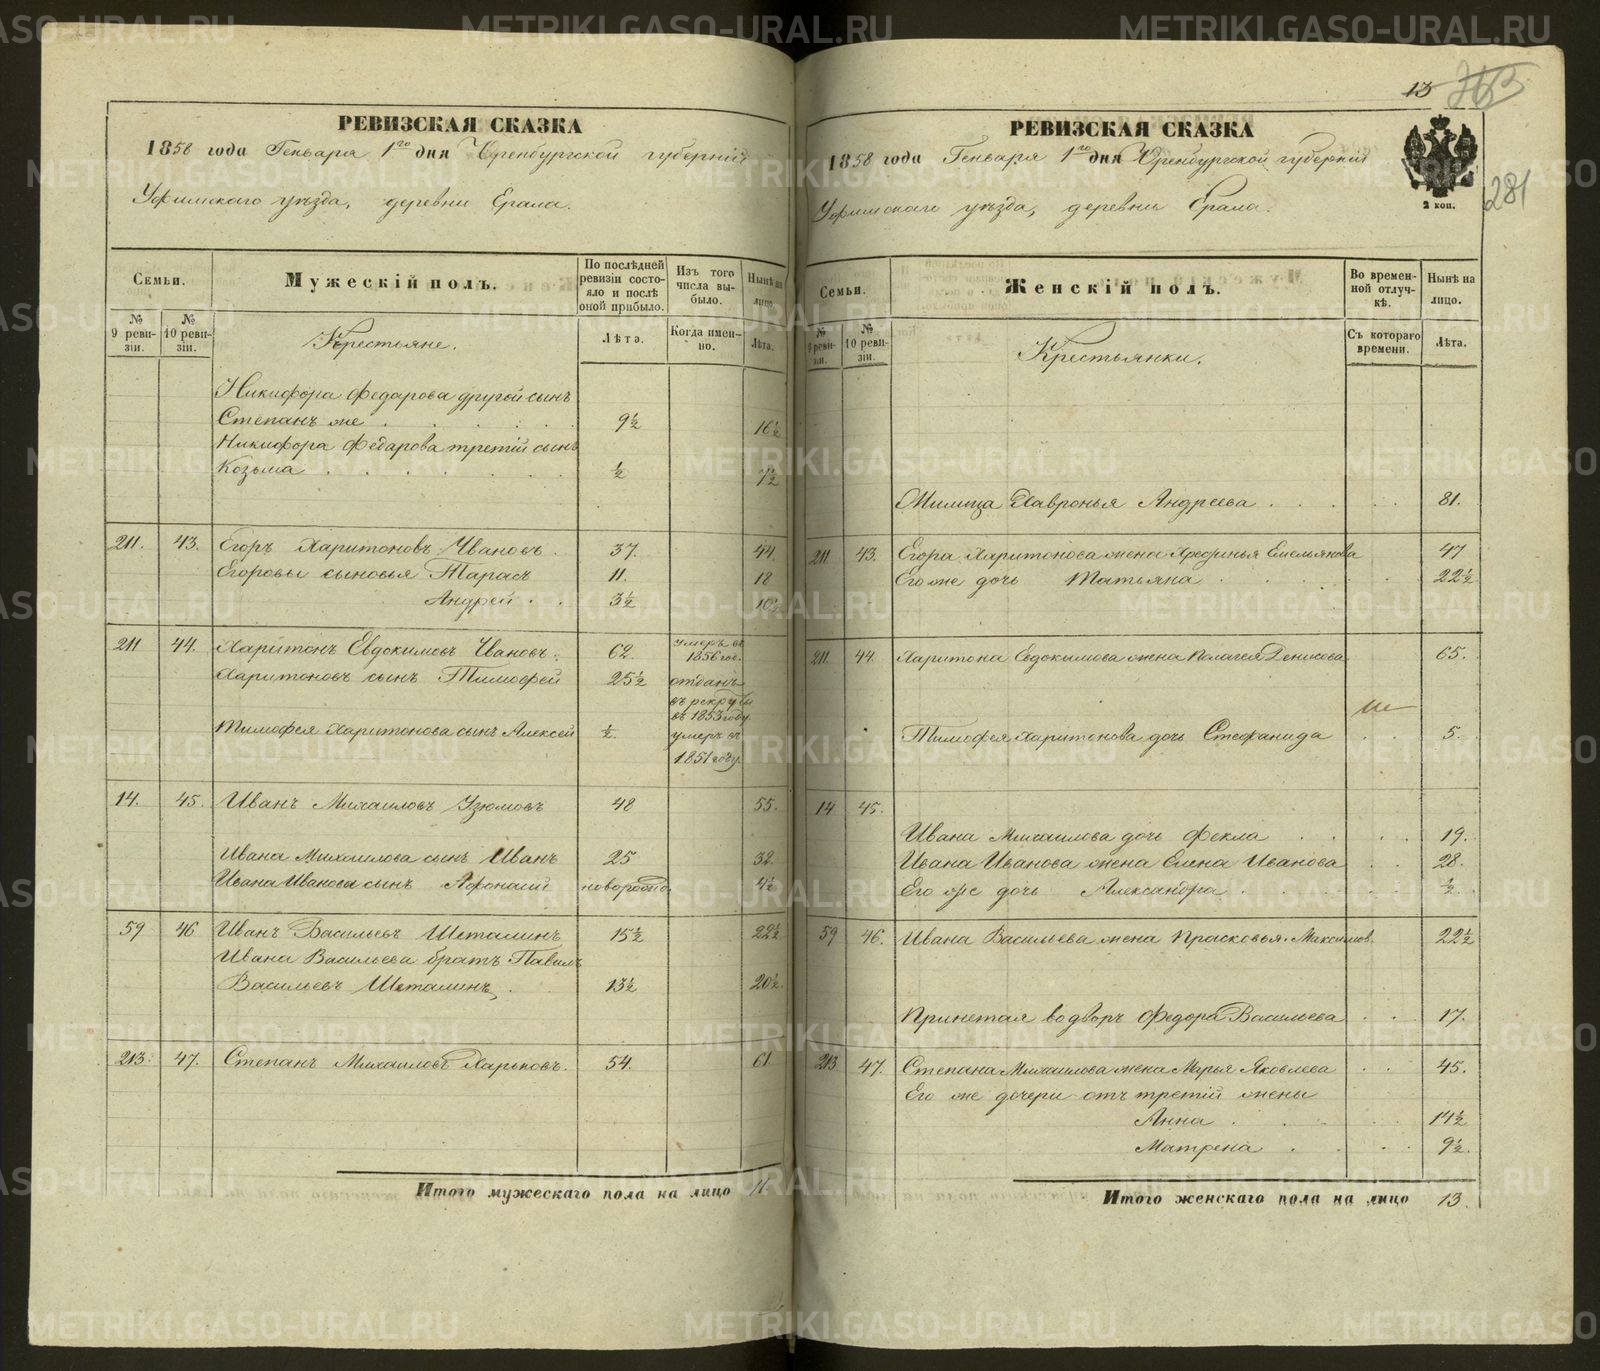 РЕВИЗСКАЯ СКАЗКА
1858 года Генваря 1го дня Оренбургской губерніи
Уфимскаго уѣзда, деревни Ерала.
Семьи.
Мужескій полъ.
По послѣдней ревизіи состояло и послѣ оной прибыло.
Изъ того числа выбыло.
Нынѣ на лицо.
№ 9 ревизіи.
№ 10 ревизіи.
Крестьяне.
Лѣта.
Когда именно.
Лѣта.
Никифора Федарова другой сынъ
Степанъ же 9½ 16½
Никифора Федарова третій сынъ
Козьма ½ 7½
211. 43. Егоръ Харитоновъ Ивановъ 37. 44.
Егоровы сыновья Тарасъ 11. 18
Андрей 3½ 10½
211 44. Харитонъ Евдокимовъ Ивановъ 62. умеръ въ 1856 год.
Харитоновъ сынъ Тимофей 25½ отданъ въ рекруты въ 1853 году.
Тимофея Харитонова сынъ Алексей ½. умеръ въ 1851 году.
14. 45. Иванъ Михаиловъ Узюмовъ 48 55.
Ивана Михаилова сынъ Иванъ 25 32.
Ивана Иванова сынъ Афонасій новорожд. 4½
59 46 Иванъ Васильевъ Шеталинъ 15½ 22½
Ивана Васильева братъ Павилъ
Васильевъ Шеталинъ 13½ 20½
213. 47. Степанъ Михаиловъ Харьковъ. 54. 61
Итого мужескаго пола на лицо 11.
13 281
РЕВИЗСКАЯ СКАЗКА
1858 года Генваря 1го дня Оренбургской губерніи
Уфимскаго уѣзда, деревни Ерала.
2 коп.
Семьи.
Женскій полъ.
Во временной отлучкѣ.
Нынѣ на лицо.
№ 9 ревизіи.
№ 10 ревизіи.
Крестьянки.
Съ котораго времени.
Лѣта.
Милица Хавронья Андреева 81.
211 43. Егора Харитонова жена Хрединья Емельянова 47
Его же дочь Татьяна 22½
211. 44. Харитона Евдокимова жена Полагея Денисова 65.
Тимофея Харитонова дочь Стефанида 5.
14 45.
Ивана Михаилова дочь Фекла 19.
Ивана Иванова жена Елена Иванова 28.
Его же дочь Александра ½.
59 46. Ивана Васильева жена Прасковья Максимов. 22½
Принетая во дворъ Федора Васильева 17.
213 47. Степана Михаилова жена Марья Яковлева 45.
Его же дочери отъ третій жены
Анна 14½
Матрена 9½.
Итого женскаго пола на лицо 13.
METRIKI.GASO-URAL.RU